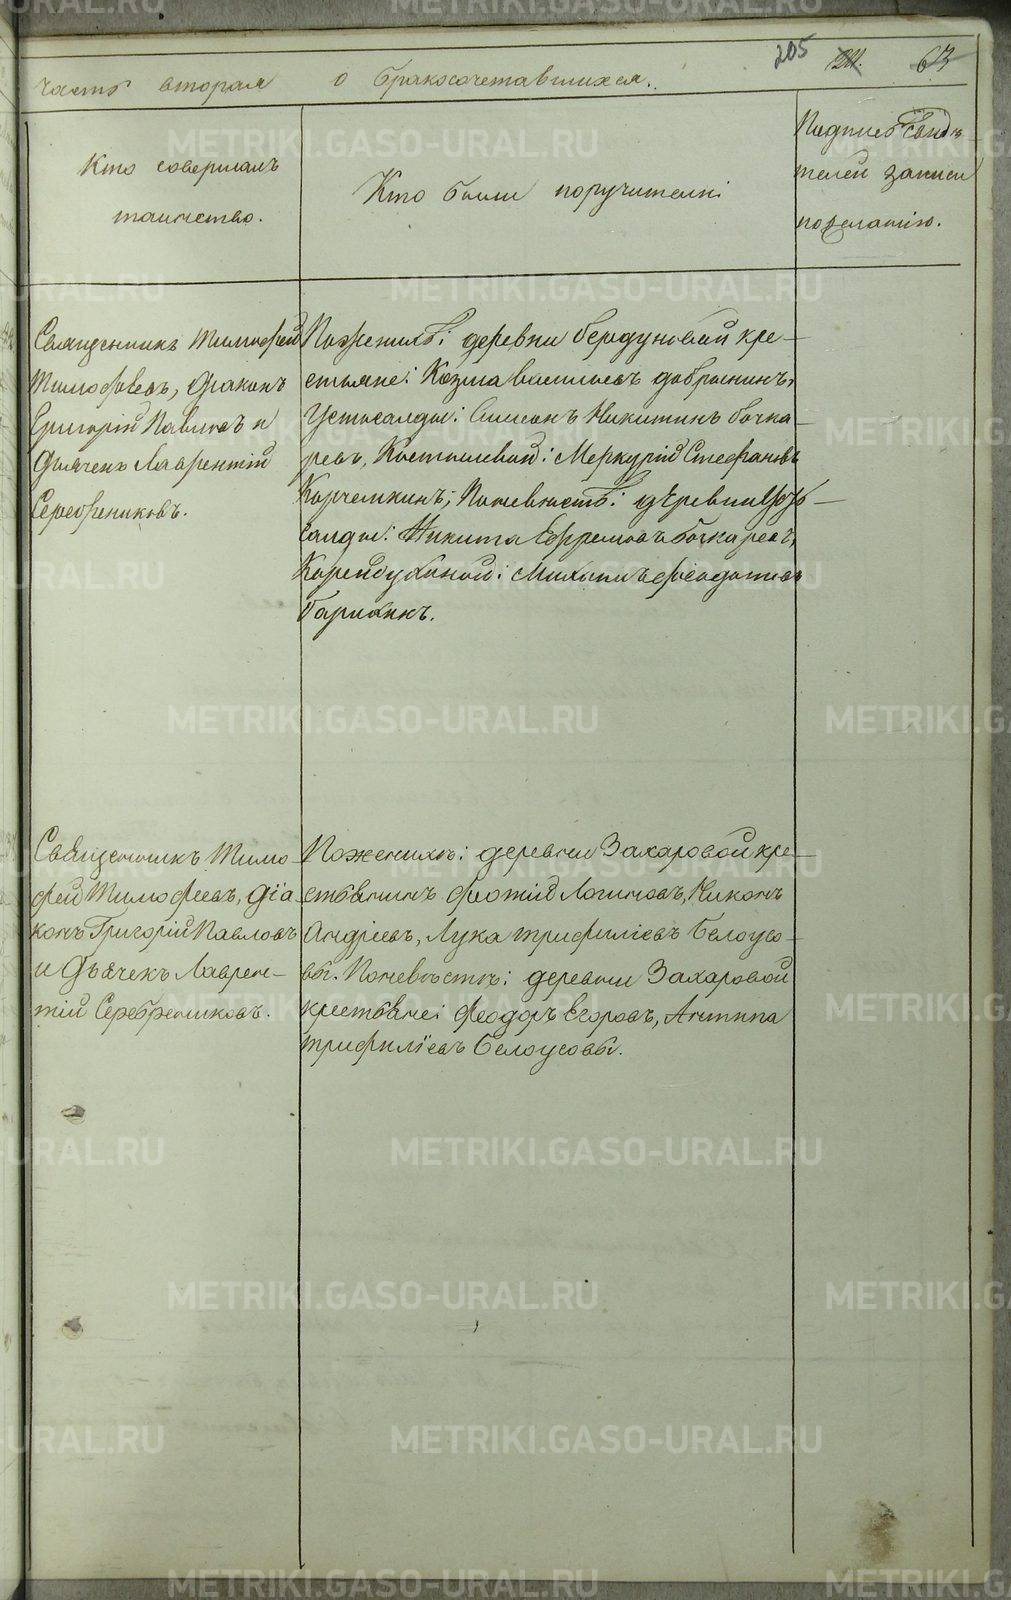 205 211. 63
Часть вторая о бракосочетавшихся.
Кто совершалъ
таинство.
Кто были поручители:
Подпись свидѣ
телей записи
по желанію.
Священникъ Тимофей
Тимофѣевъ, Діаконъ
Григорій Павловъ и
Дьячекъ Лаврентій
Серебрениковъ.
По женихѣ: деревни бердуновой кре-
стьяне: Козма васильевъ добрынинъ,
Устьсалды: Симеонъ Никитинъ бочка-
ревъ, Костылевой: Меркурій Стефановъ
Корчемкинъ; По невѣстѣ: деревни Усть-
салды: Никита Ефремовъ бочкаревъ,
Михаилъ феодотовъ
Священникъ Тимо-
фей Тимофеевъ, діа-
конъ Григорій Павловъ
и Дьячекъ Лаврен-
тій Серебрениковъ.
По женихѣ: деревни Захаровой кре-
стьянинъ Фотій Логиновъ, Никонъ
Андріевъ, Лука трифиліевъ Белоусо-
вы. По невѣстѣ: деревни Захаровой
крестьяне: Феодоръ Егоровъ, Антипа
трифиліевъ Белоусовы.
METRIKI.GASO-URAL.RU